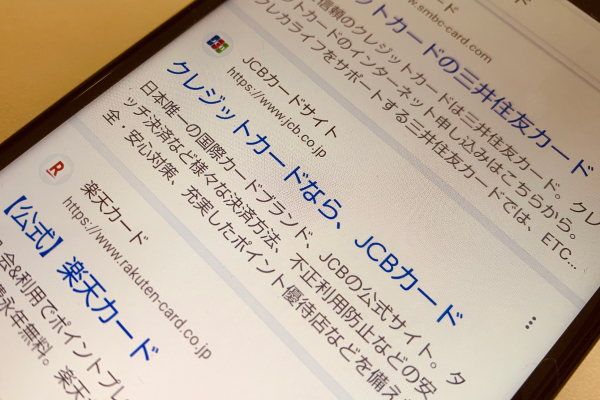 www.smbc-card.com
ットカードの三井住友カード
信頼のクレジットカードは三井住友カード。クレ
ットカードのインターネット申し込みはこちらから。
レカライフをサポートする三井住友カードでは、ETC...
JCB
JCBカードサイト
https://www.jcb.co.jp
クレジットカードなら、JCBカード
日本唯一の国際カードブランド、JCBの公式サイト。タ
ッチ決済など様々な決済方法、不正利用防止などの安
全・安心対策、充実したポイント優待店などを備え
R
楽天カード
https://www.rakuten-card.co.jp
【公式】楽天カード
会&利用でポイントプレ
永年無料。楽天